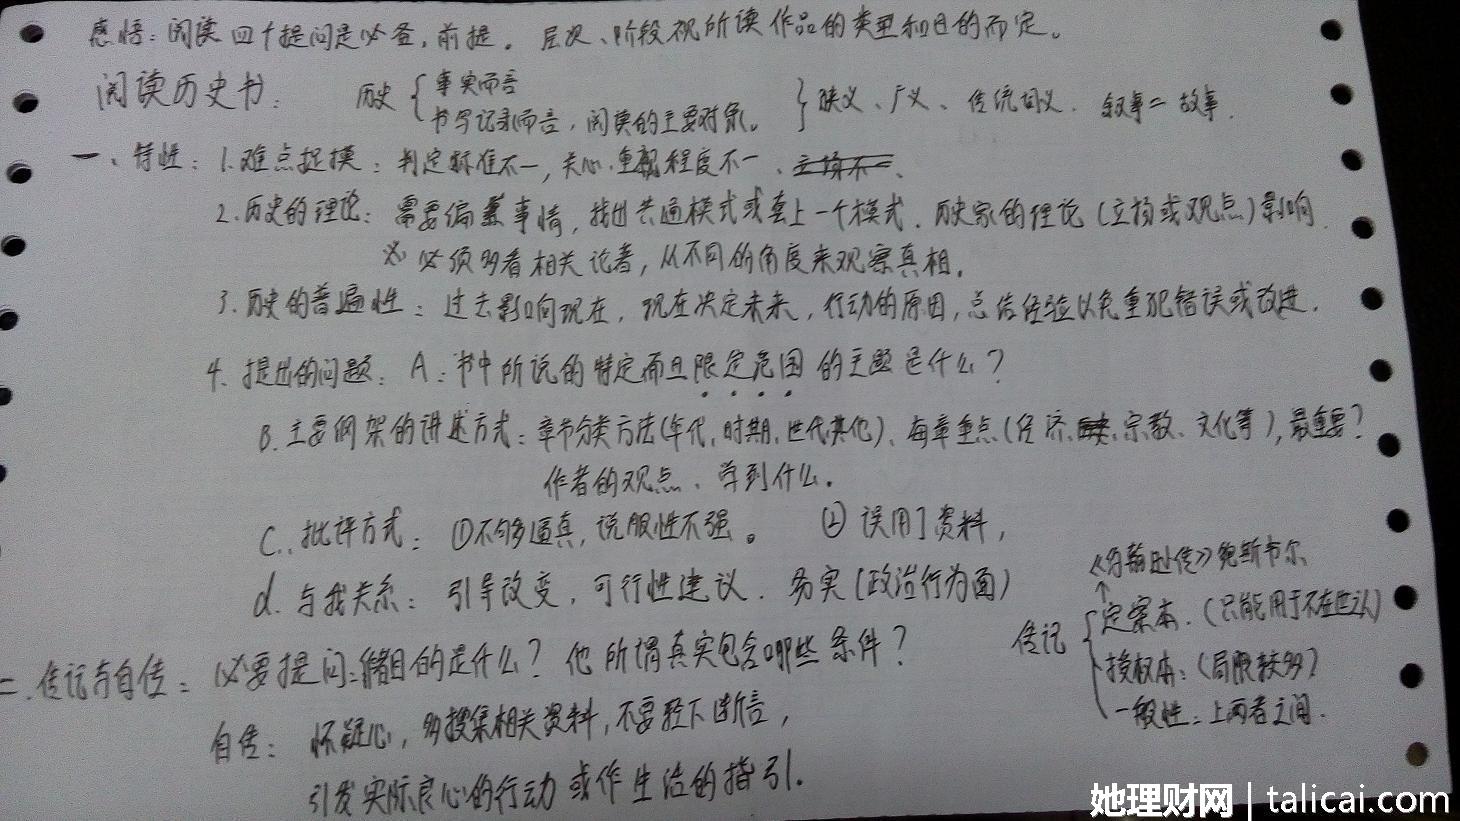 感悟：阅读四个提问是必备，前提。层次、阶段视所读作品的类型和目的而定。
阅读历史书： 历史 { 事实而言
书写记录而言，阅读的主要对象。 } 狭义、广义、传统词义. 叙事＝故事.
一、特性：1.难点捉摸：判定标准不一，关心.重视程度不一、
2.历史的理论：需要偏重事情，找出共通模式或套上一个模式.历史家的理论（立场或观点）影响.
※ 必须多看相关论著，从不同的角度来观察真相.
3.历史的普遍性：过去影响现在，现在决定未来，行动的原因，总结经验以免重犯错误或改进.
4.提出的问题：A：书中所说的特定而且限定范围的主题是什么？
B.主要纲架的讲述方式：章节分类方法（年代、时期、世代其他）、每章重点（经济、宗教、文化等），最重要？
作者的观点、学到什么.
C.批评方式：①不够逼真，说服性不强。 ②误用了资料，
d.与我关系：引导改变，可行性建议. 务实（政治行为面）
《约翰逊传》鲍斯韦尔
↑
传记 { 定案本.（只能用于不在世认）
授权本：（局限较多）
一般性：上两者之间.
二、传记与自传：必要提问：目的是什么？他所谓真实包含哪些条件？
自传：怀疑心，多搜集相关资料，不要轻下断言，
引发实际良心的行动或作生活的指引.
她理财网 | talicai.com